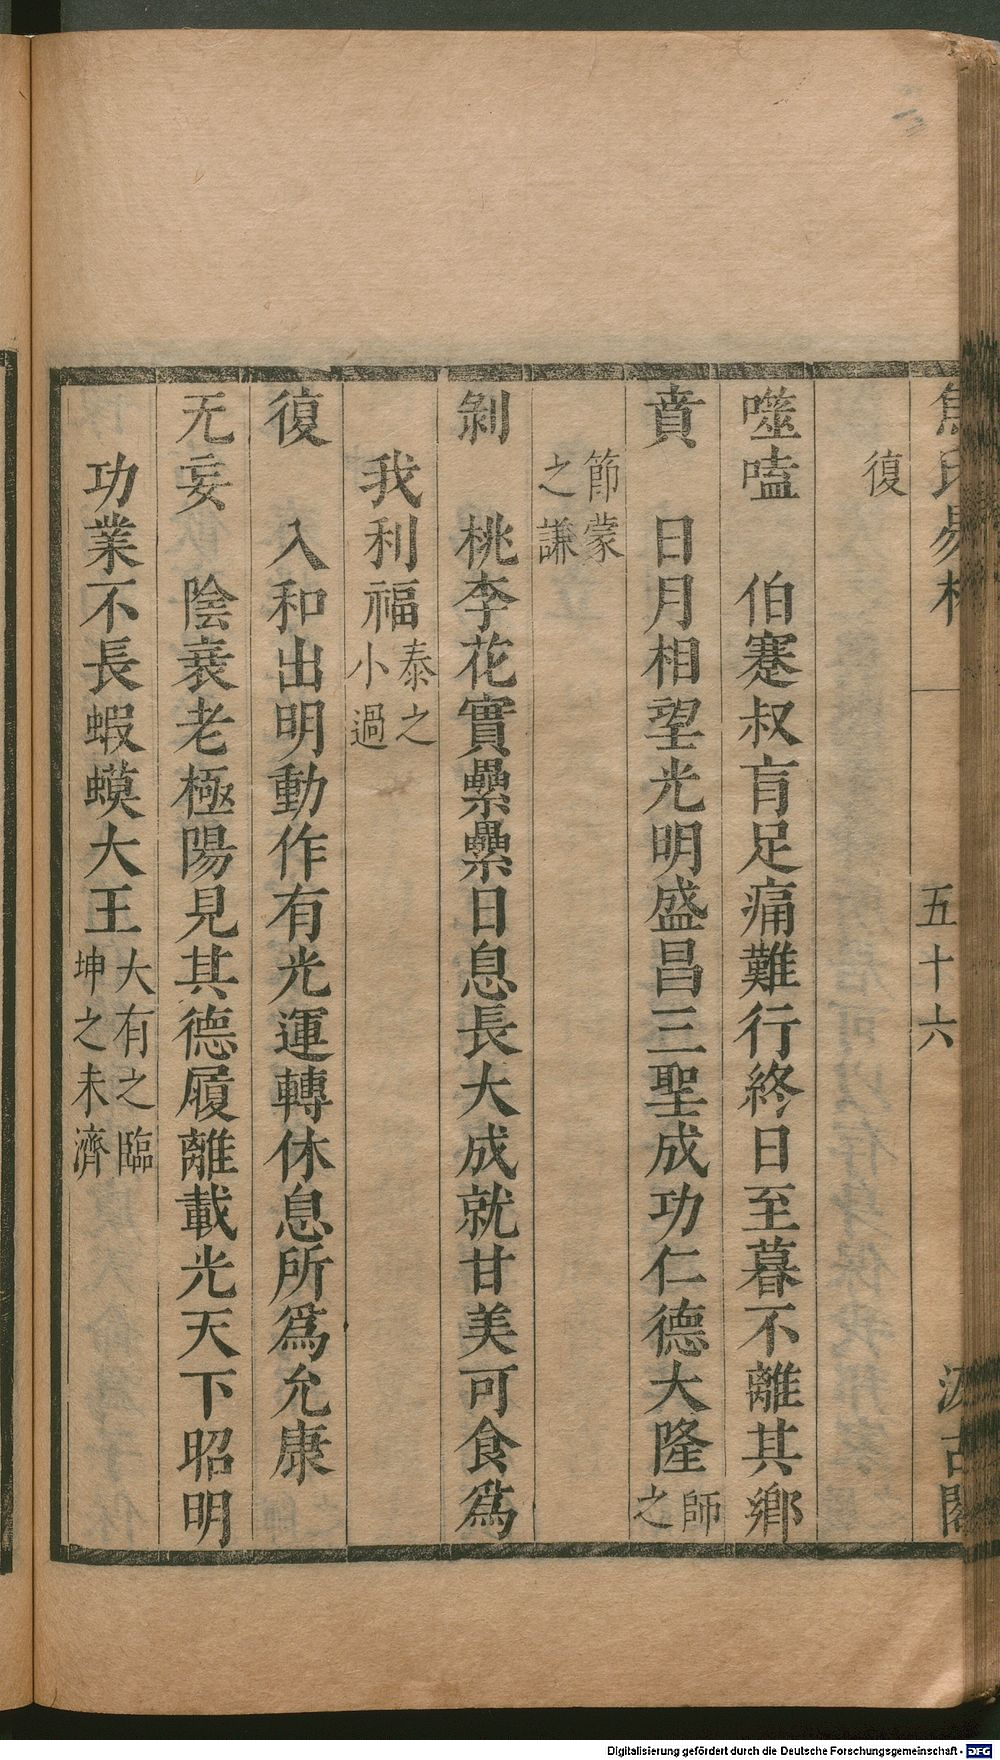 焦氏易林 五十六 汲古閣
復
噬嗑 伯蹇叔盲足痛難行終日至暮不離其鄉
賁 日月相望光明盛昌三聖成功仁德大隆師之
節蒙之謙
剝 桃李花實纍纍日息長大成就甘美可食爲
我利福泰之小過
復 入和出明動作有光運轉休息所爲允康
无妄 陰衰老極陽見其德履離載光天下昭明
功業不長蝦蟆大王大有之臨坤之未濟
Digitalisierung gefördert durch die Deutsche Forschungsgemeinschaft - DFG